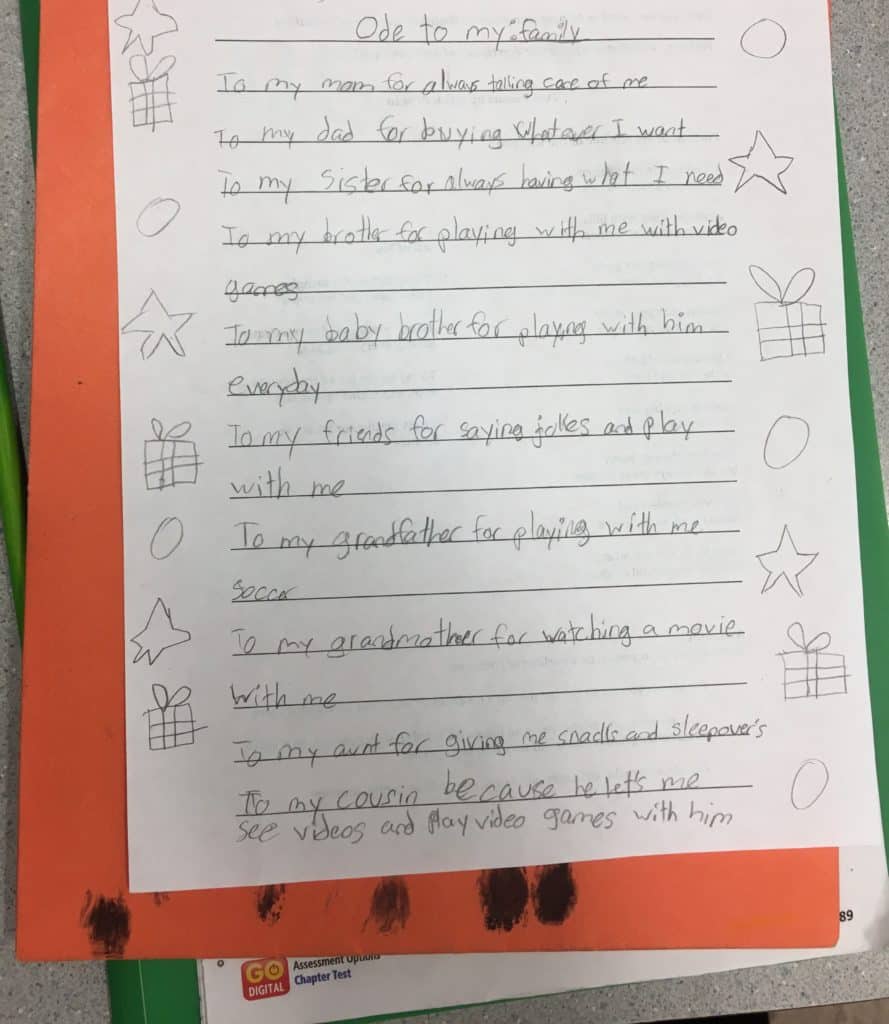 Ode to my family
To my mom for always talking care of me
To my dad for buying whatever I want
To my sister for always having what I need
To my brother for playing with me with video
games
To my baby brother for playing with him
everyday
To my friends for saying jokes and play
with me
To my grandfather for playing with me
soccor
To my grandmother for watching a movie
with me
To my aunt for giving me snacks and sleepover's
To my cousin because he let's me
see videos and play video games with him
89
GO
DIGITAL
Assessment Options
Chapter Test